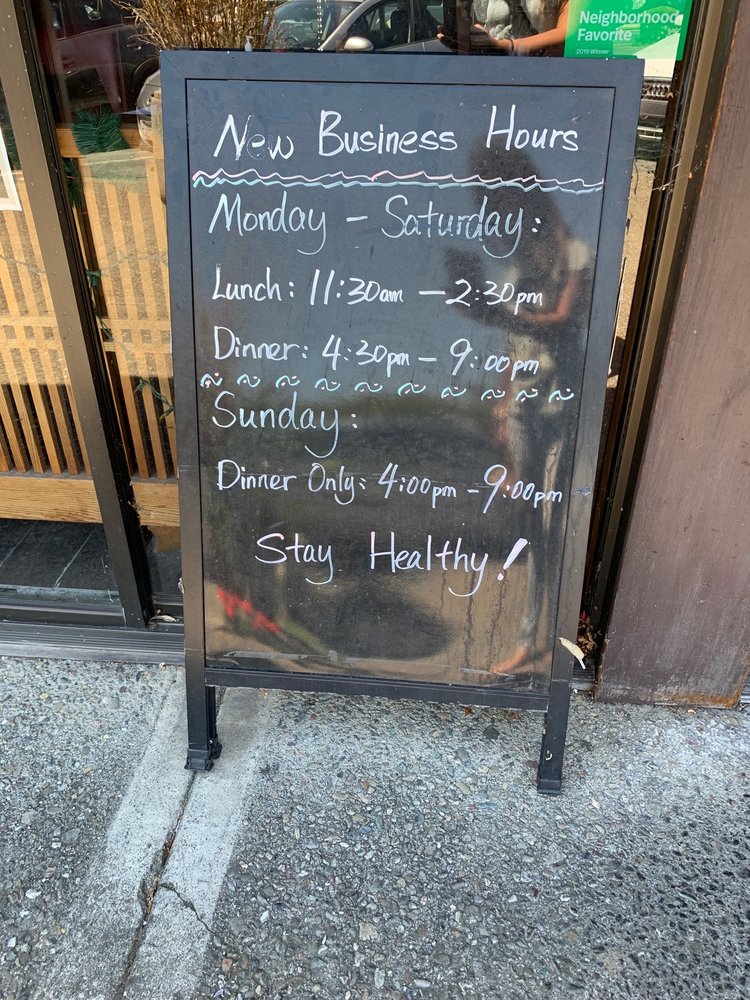 Neighborhood
Favorite
2019 Winner
New Business Hours
Monday - Saturday:
Lunch: 11:30am - 2:30pm
Dinner: 4:30pm - 9:00pm
Sunday:
Dinner Only: 4:00pm - 9:00pm
Stay Healthy!